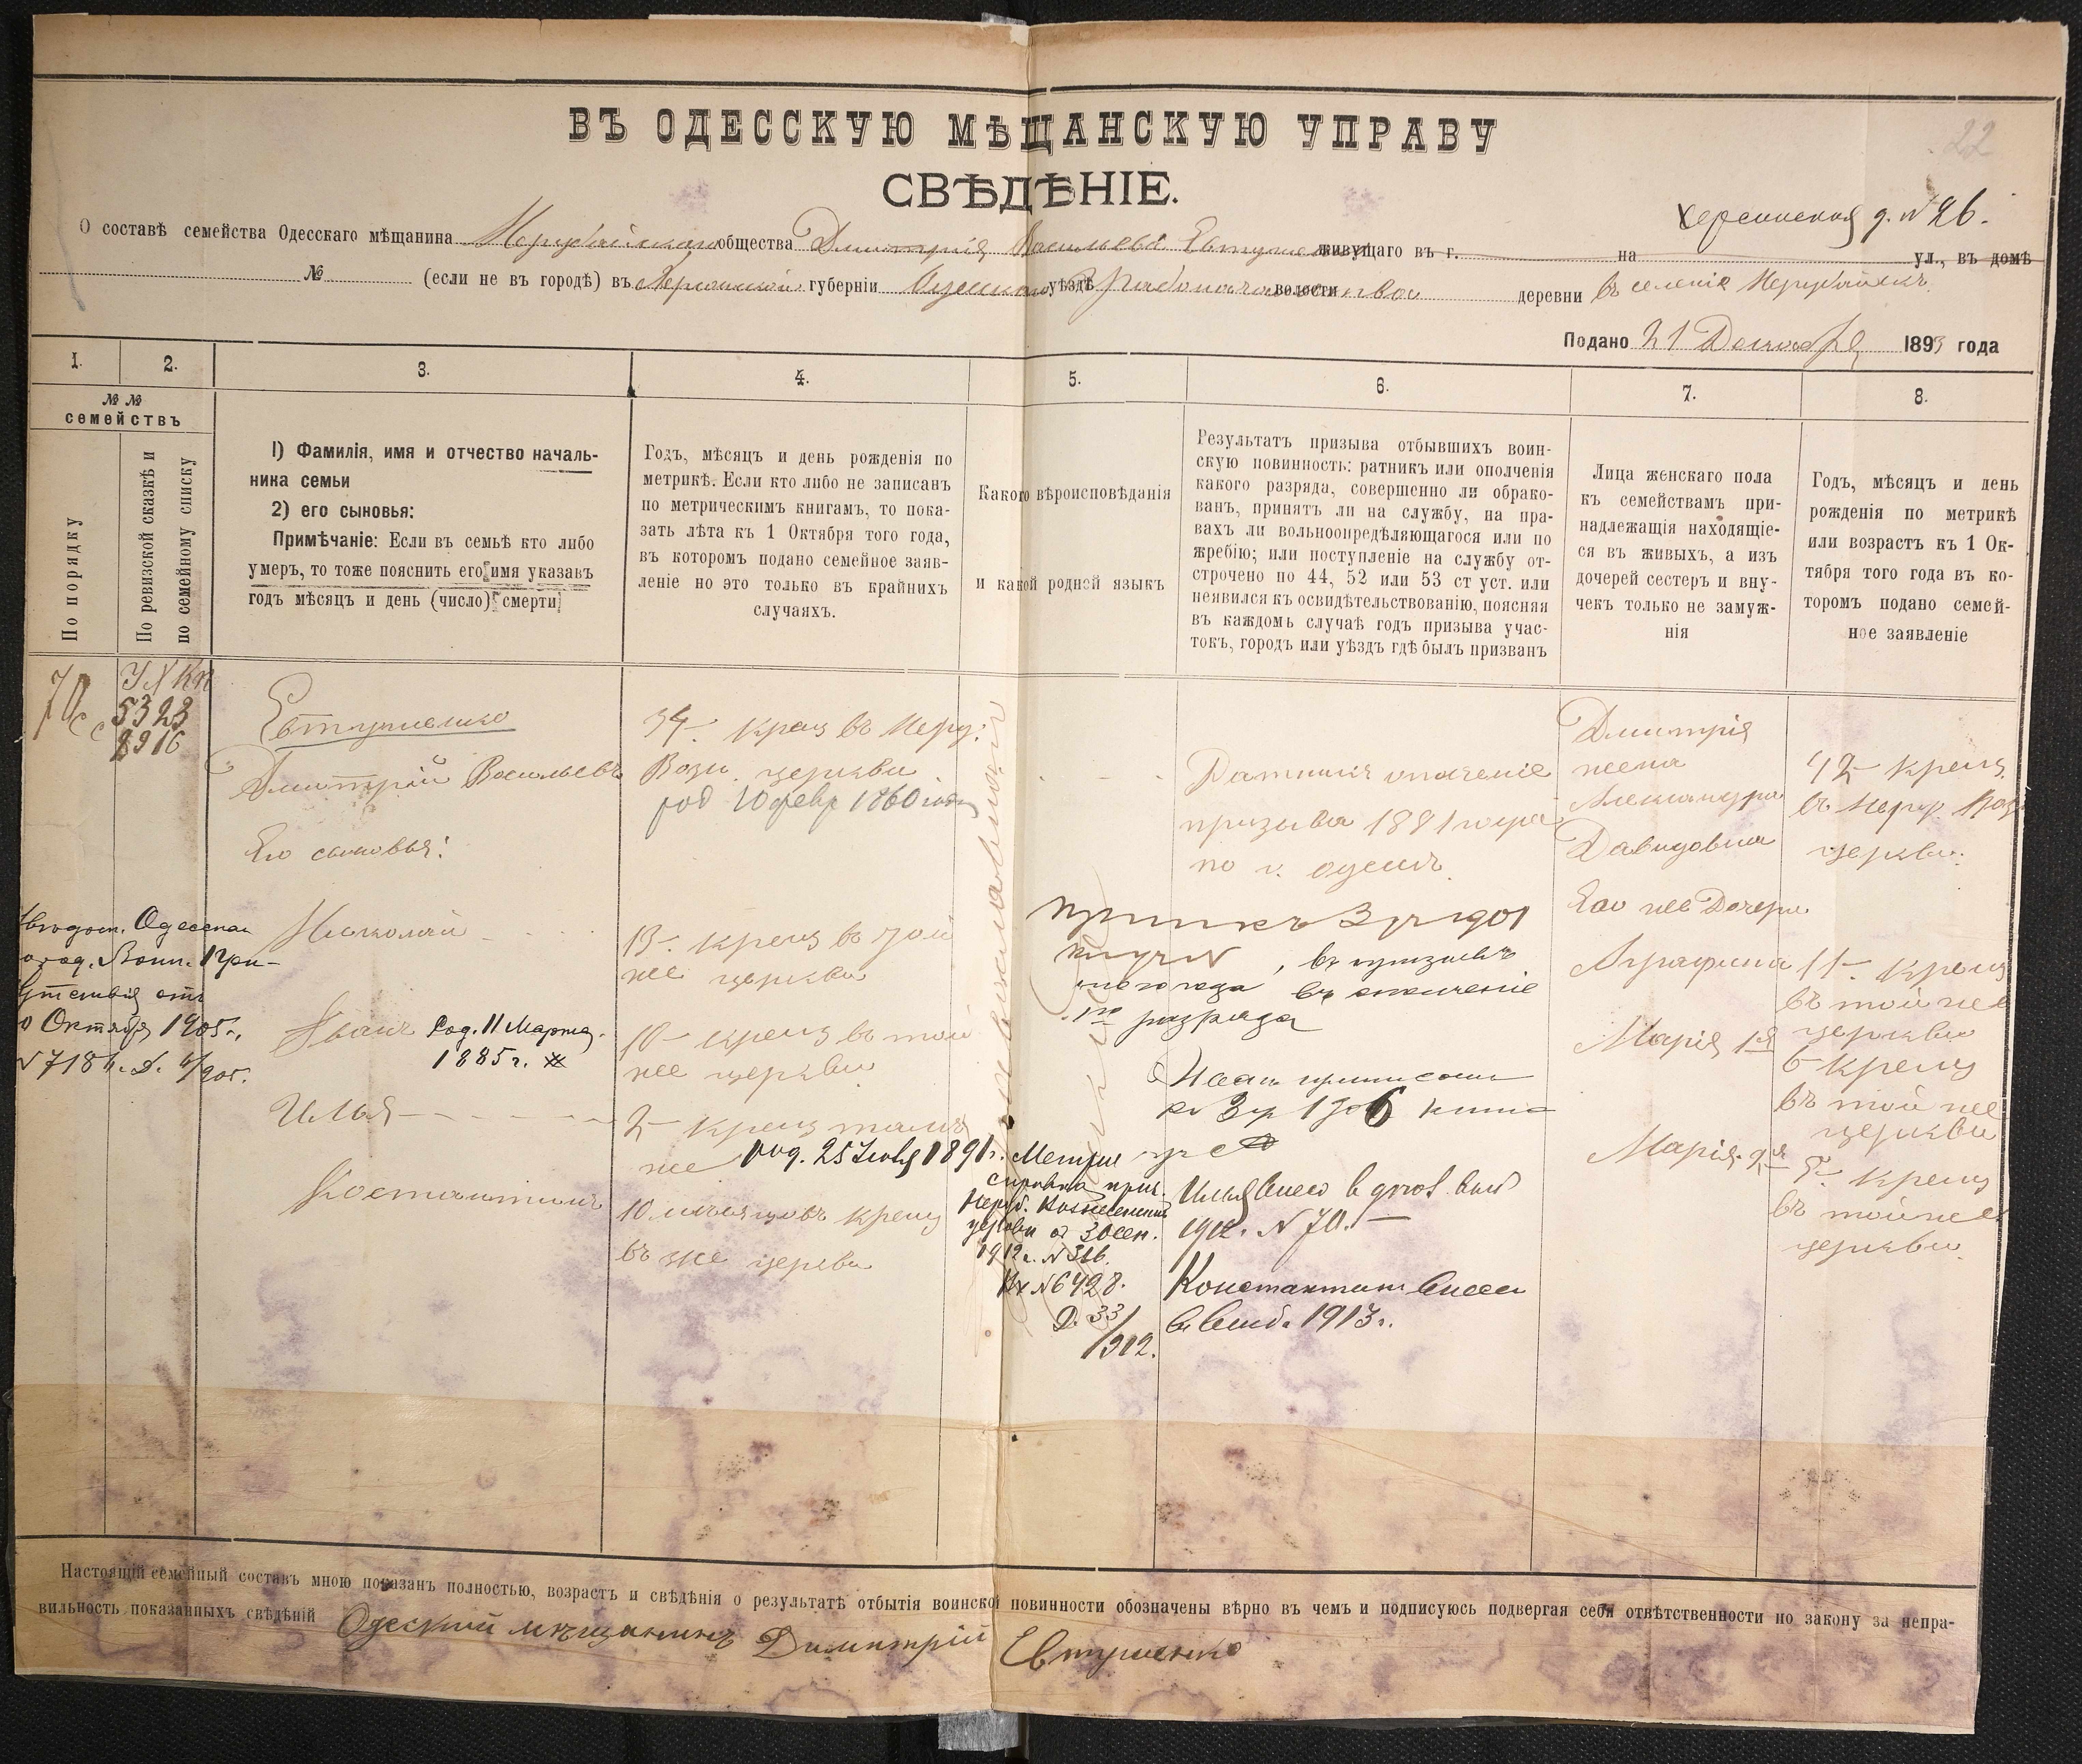 22
ВЪ ОДЕССКУЮ МѢЩАНСКУЮ УПРАВУ
СВѢДѢНІЕ.
Херсонская д. №26.
О составѣ семейства Одесскаго мѣщанина Нерубайскаго общества Дмитрія Васильева Евтушенко живущаго въ г. на ул., въ домѣ
№ (если не въ городѣ) въ Херсонской губерніи Одесскаго уѣздѣ Градоначальства волости деревни въ селеніе Нерубайскъ
Подано 21 Декабря 1893 года
1. 2. 3. 4. 5. 6. 7. 8.
№ №
семействъ
По порядку
По ревизской сказкѣ и
по семейному списку
1) Фамилія, имя и отчество началь-
ника семьи
2) его сыновья:
Примѣчаніе: Если въ семьѣ кто либо
умеръ, то тоже пояснить его имя указавъ
годъ мѣсяцъ и день (число) смерти
Годъ, мѣсяцъ и день рожденія по
метрикѣ. Если кто либо не записанъ
по метрическимъ книгамъ, то пока-
зать лѣта къ 1 Октября того года,
въ которомъ подано семейное заяв-
леніе но это только въ крайнихъ
случаяхъ.
Какого вѣроисповѣданія
и какой родной языкъ
Результатъ призыва отбывшихъ воин-
скую повинность: ратникъ или ополченія
какого разряда, совершенно ли обрако-
ванъ, принятъ ли на службу, на пра-
вахъ ли вольноопредѣляющагося или по
жребію; или поступленіе на службу от-
строчено по 44, 52 или 53 ст уст. или
неявился къ освидѣтельствованію, поясняя
въ каждомъ случаѣ годъ призыва учас-
токъ, городъ или уѣздъ гдѣ былъ призванъ
Лица женскаго пола
къ семействамъ при-
надлежащія находящіе-
ся въ живыхъ, а изъ
дочерей сестеръ и вну-
чекъ только не замуж-
нія
Годъ, мѣсяцъ и день
рожденія по метрикѣ
или возрастъ къ 1 Ок-
тября того года въ ко-
торомъ подано семей-
ное заявленіе
70
5323
8916
Евтушенко
Дмитрій Васильевъ
Его сыновья:
Николай
Иванъ Род. 11 Марта
1885 г.
Илья
Костантинъ
Одесскаго
Воин. При-
сутствія отъ
Октября 1905 г.,
№7184. Д. 4/905.
34 крещ въ Неруб.
Возн. церкви
род 10 февр 1860 года
13 крещ въ той
же церкви
10 крещ въ той
же церкви
2 крещ тамъ
же род. 25 Іюля 1891 г.
10 мѣсяцовъ крещ
въ же церкви
православной
Метрич
справка прич.
Неруб. Вознесенской
церкви от 30 сен.
1912 г. №316.
Вх №6428.
Д. 33/912.
Ратникъ ополченіе
призыва 1881 года
по г. Одессѣ.
, въ призывъ
въ ополченіе
1го разряда
Иванъ приписанъ
къ 3 уч 1906
Илья внес в
1912. №70.
Константин внесен
1913 г.
Дмитрія
жена
Александра
Давидовна
Его же Дочери
Аграфина
Марія 1я
Марія 2я
42 крещ.
въ Неруб. Возн
церкви.
11 крещ
въ той же
церкви
6 крещ
въ той же
церкви
5 крещ
въ той же
церкви.
Настоящій семейный составъ мною показанъ полностью, возрастъ и свѣдѣнія о результатѣ отбытія воинской повинности обозначены вѣрно въ чемъ и подписуюсь подвергая себя отвѣтственности по закону за непра-
вильность показанныхъ свѣдѣній Одеский мѣщанинъ Димитрій Евтушенко